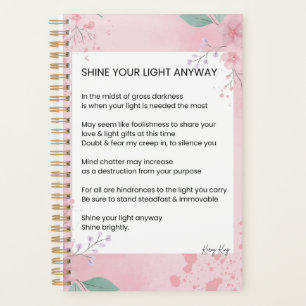 SHINE YOUR LIGHT ANYWAY
In the midst of gross darkness
is when your light is needed the most
May seem like foolishness to share your
love & light gifts at this time
Doubt & fear my creep in, to silence you
Mind chatter may increase
as a destraction from your purpose
For all are hindrances to the light you carry
Be sure to stand steadfast & immovable
Shine your light anyway
Shine brightly.
King